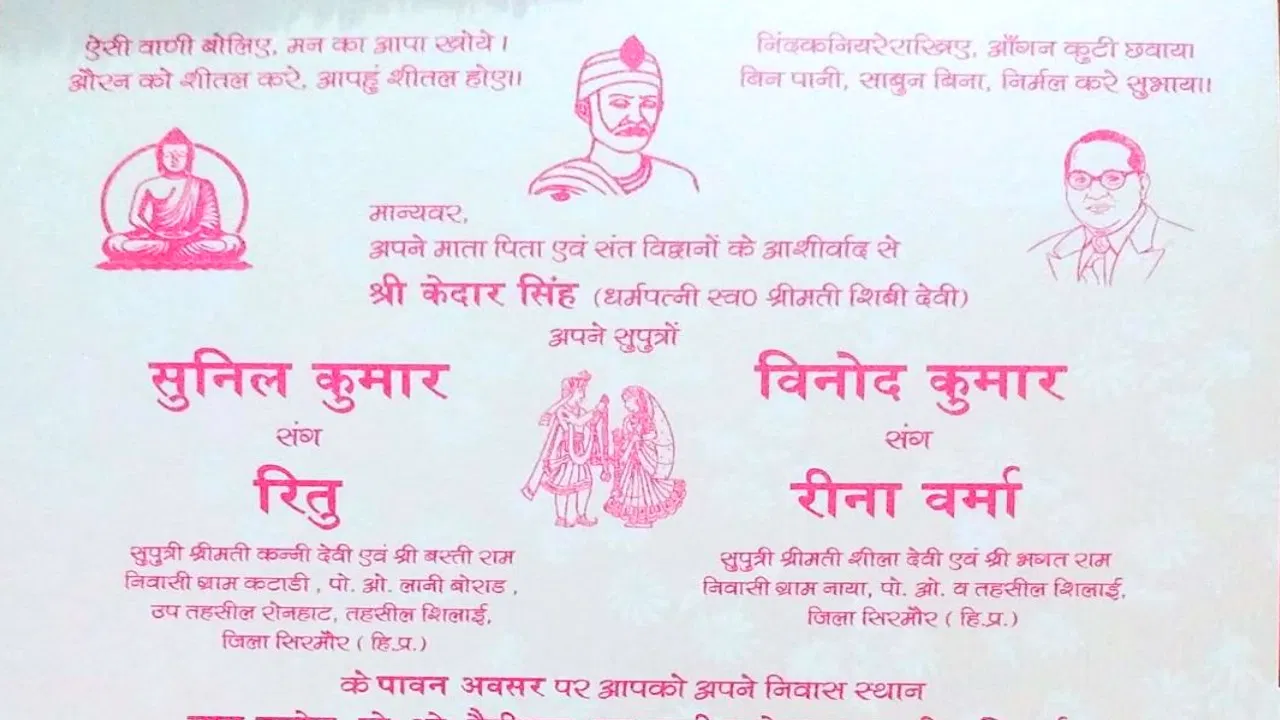 ऐसी वाणी बोलिए, मन का आपा खोये।
औरन को शीतल करे, आपहुं शीतल होए॥
निंदकनियरेराखिए, आँगन कुटी छवाय।
बिन पानी, साबुन बिना, निर्मल करे सुभाय॥
मान्यवर,
अपने माता पिता एवं संत विद्वानों के आशीर्वाद से
श्री केदार सिंह (धर्मपत्नी स्व0 श्रीमती शिबी देवी)
अपने सुपुत्रों
सुनिल कुमार
संग
रितु
सुपुत्री श्रीमती कन्नी देवी एवं श्री बस्ती राम
निवासी ग्राम कटाडी, पो. ओ. लानी बोराड,
उप तहसील रोनहाट, तहसील शिलाई,
जिला सिरमौर (हि.प्र.)
विनोद कुमार
संग
रीना वर्मा
सुपुत्री श्रीमती शीला देवी एवं श्री भगत राम
निवासी ग्राम नाया, पो. ओ. व तहसील शिलाई,
जिला सिरमौर (हि.प्र.)
के पावन अवसर पर आपको अपने निवास स्थान